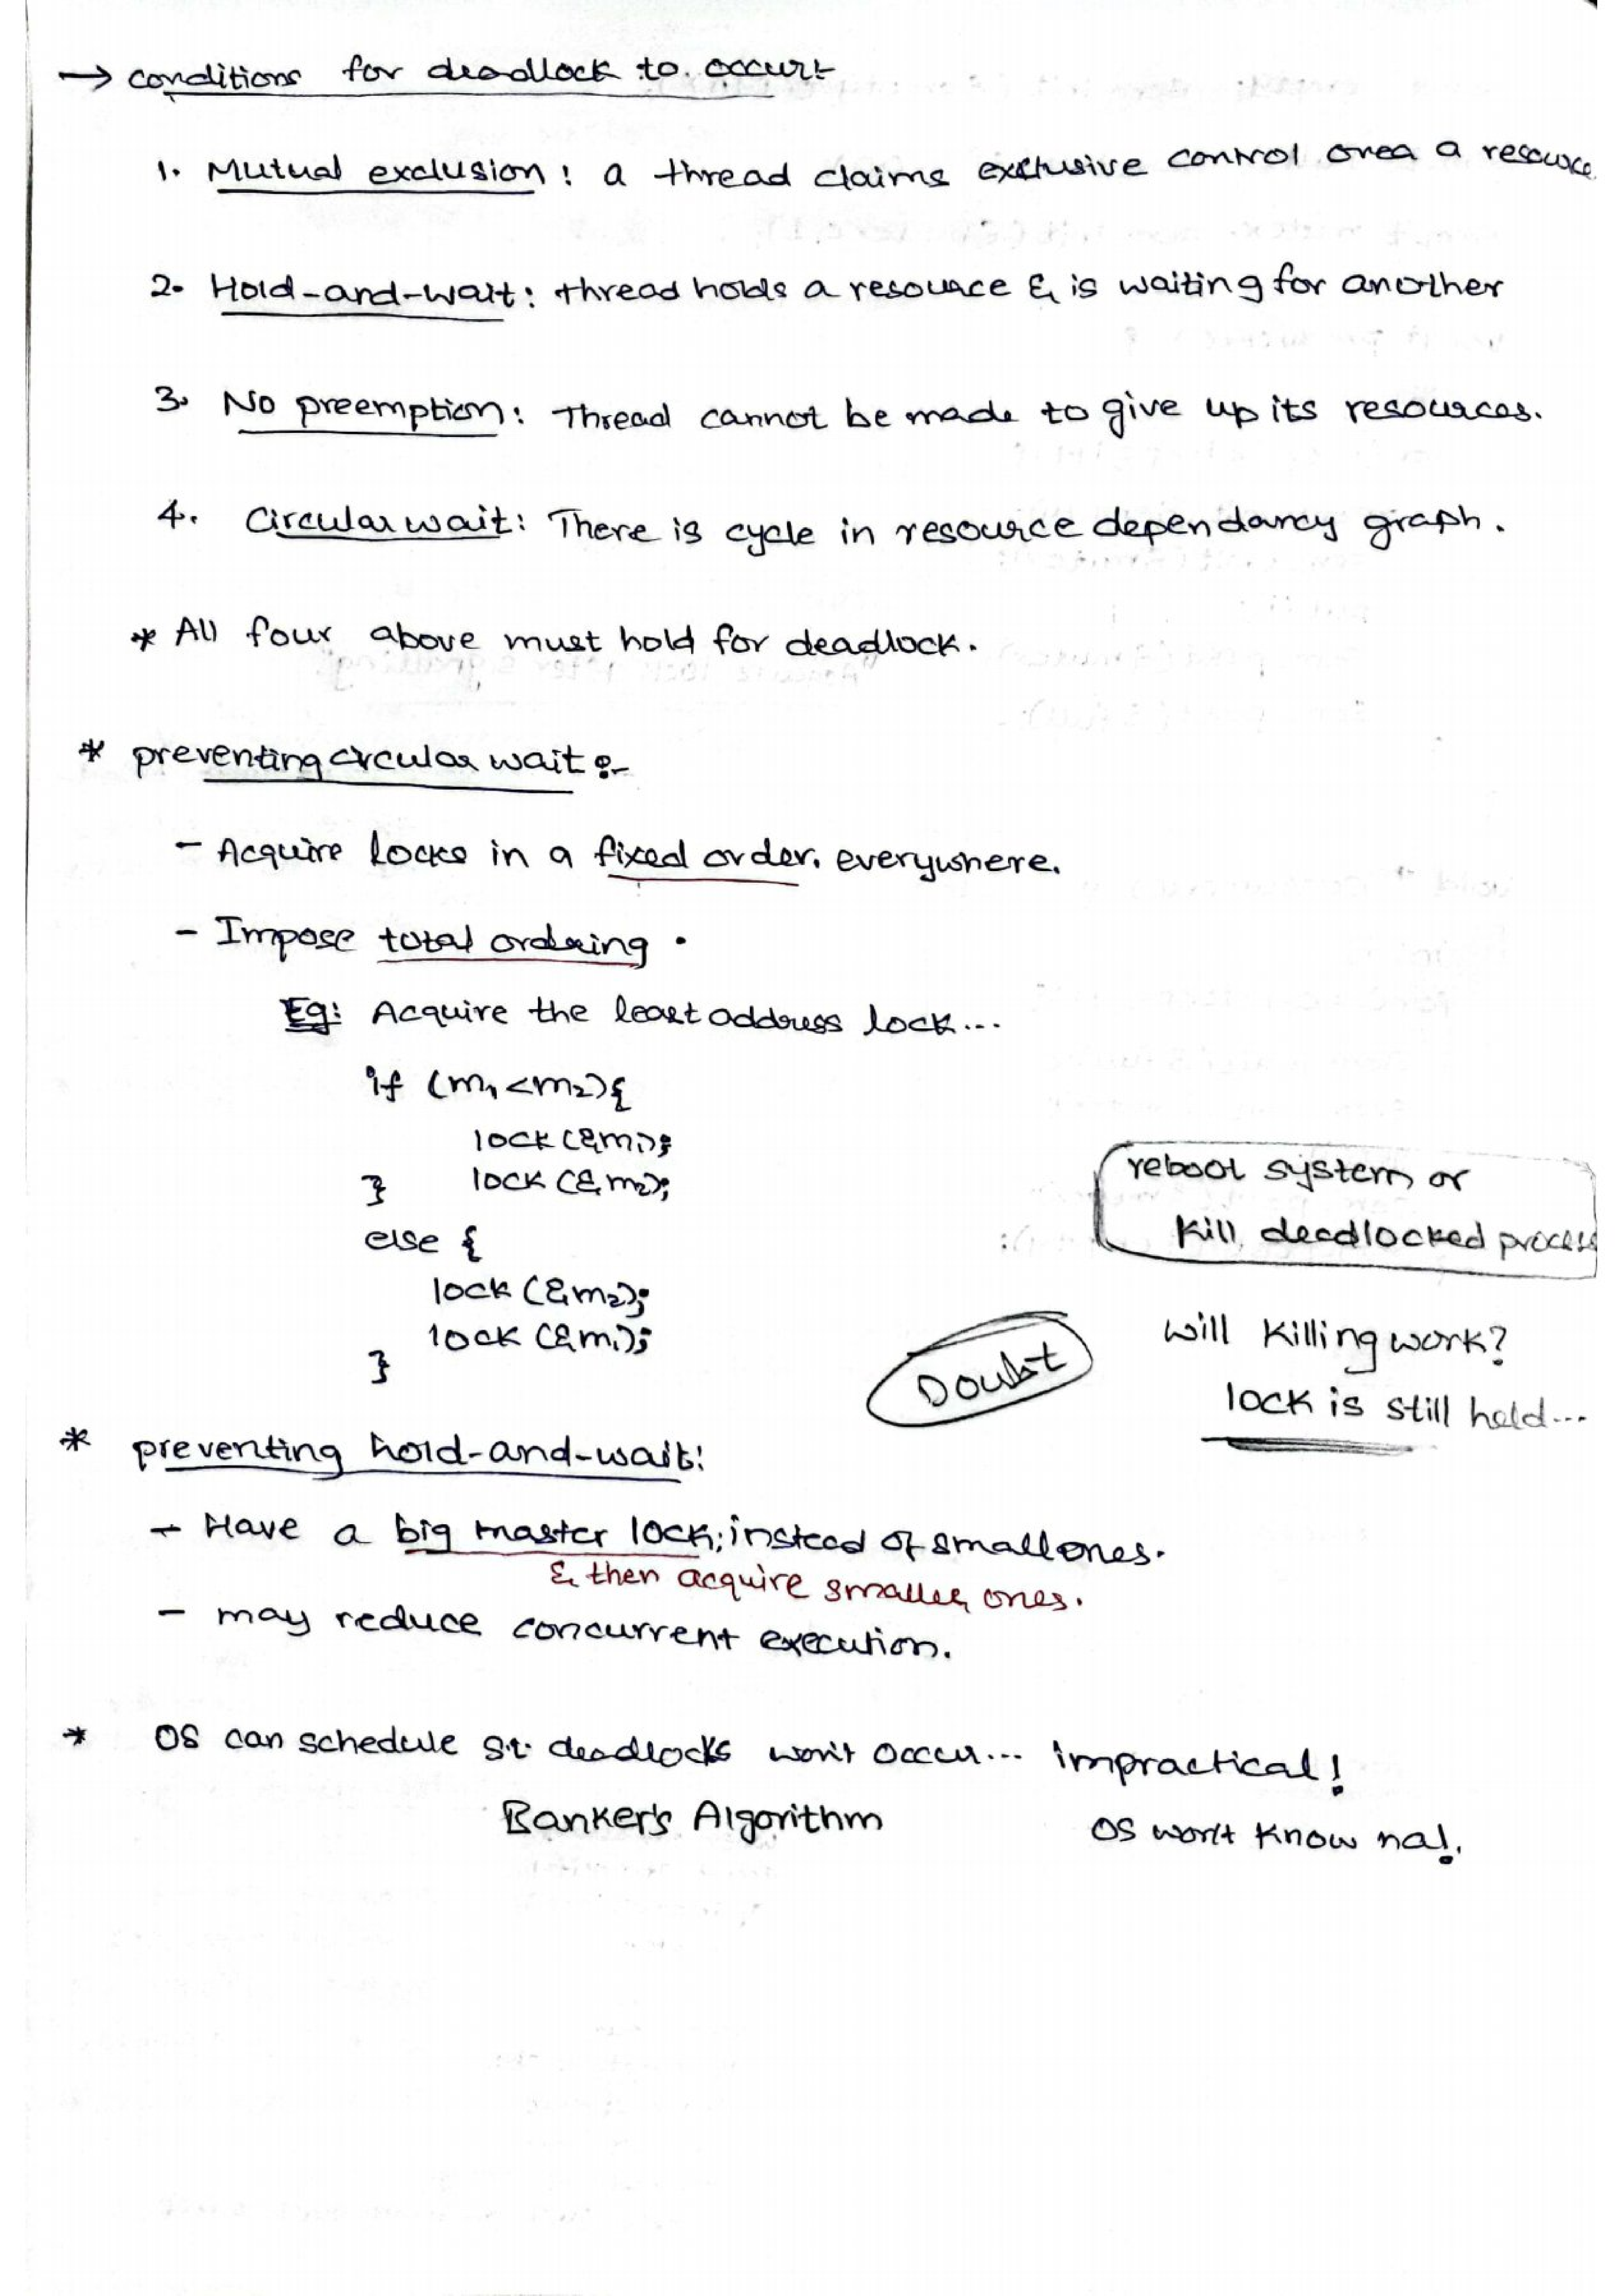 → conditions for deadlock to occur:-
1. Mutual exclusion: a thread claims exclusive control over a resource
2. Hold-and-wait: thread holds a resource & is waiting for another
3. No preemption: Thread cannot be made to give up its resources.
4. Circular wait: There is cycle in resource dependancy graph.
* All four above must hold for deadlock.
* preventing circular wait:-
- Acquire locks in a fixed order. everywhere.
- Impose total ordering.
Eg: Acquire the least address lock...
if (m1 < m2) {
lock (&m1);
} lock (&m2);
else {
lock (&m2);
lock (&m1);
}
reboot system or
kill deadlocked process
Doubt
will killing work?
lock is still held...
* preventing hold-and-wait:
- Have a big master lock; instead of small ones.
& then acquire smaller ones.
- may reduce concurrent execution.
* OS can schedule s.t. deadlocks won't occur... impractical!
Banker's Algorithm OS won't know na!.